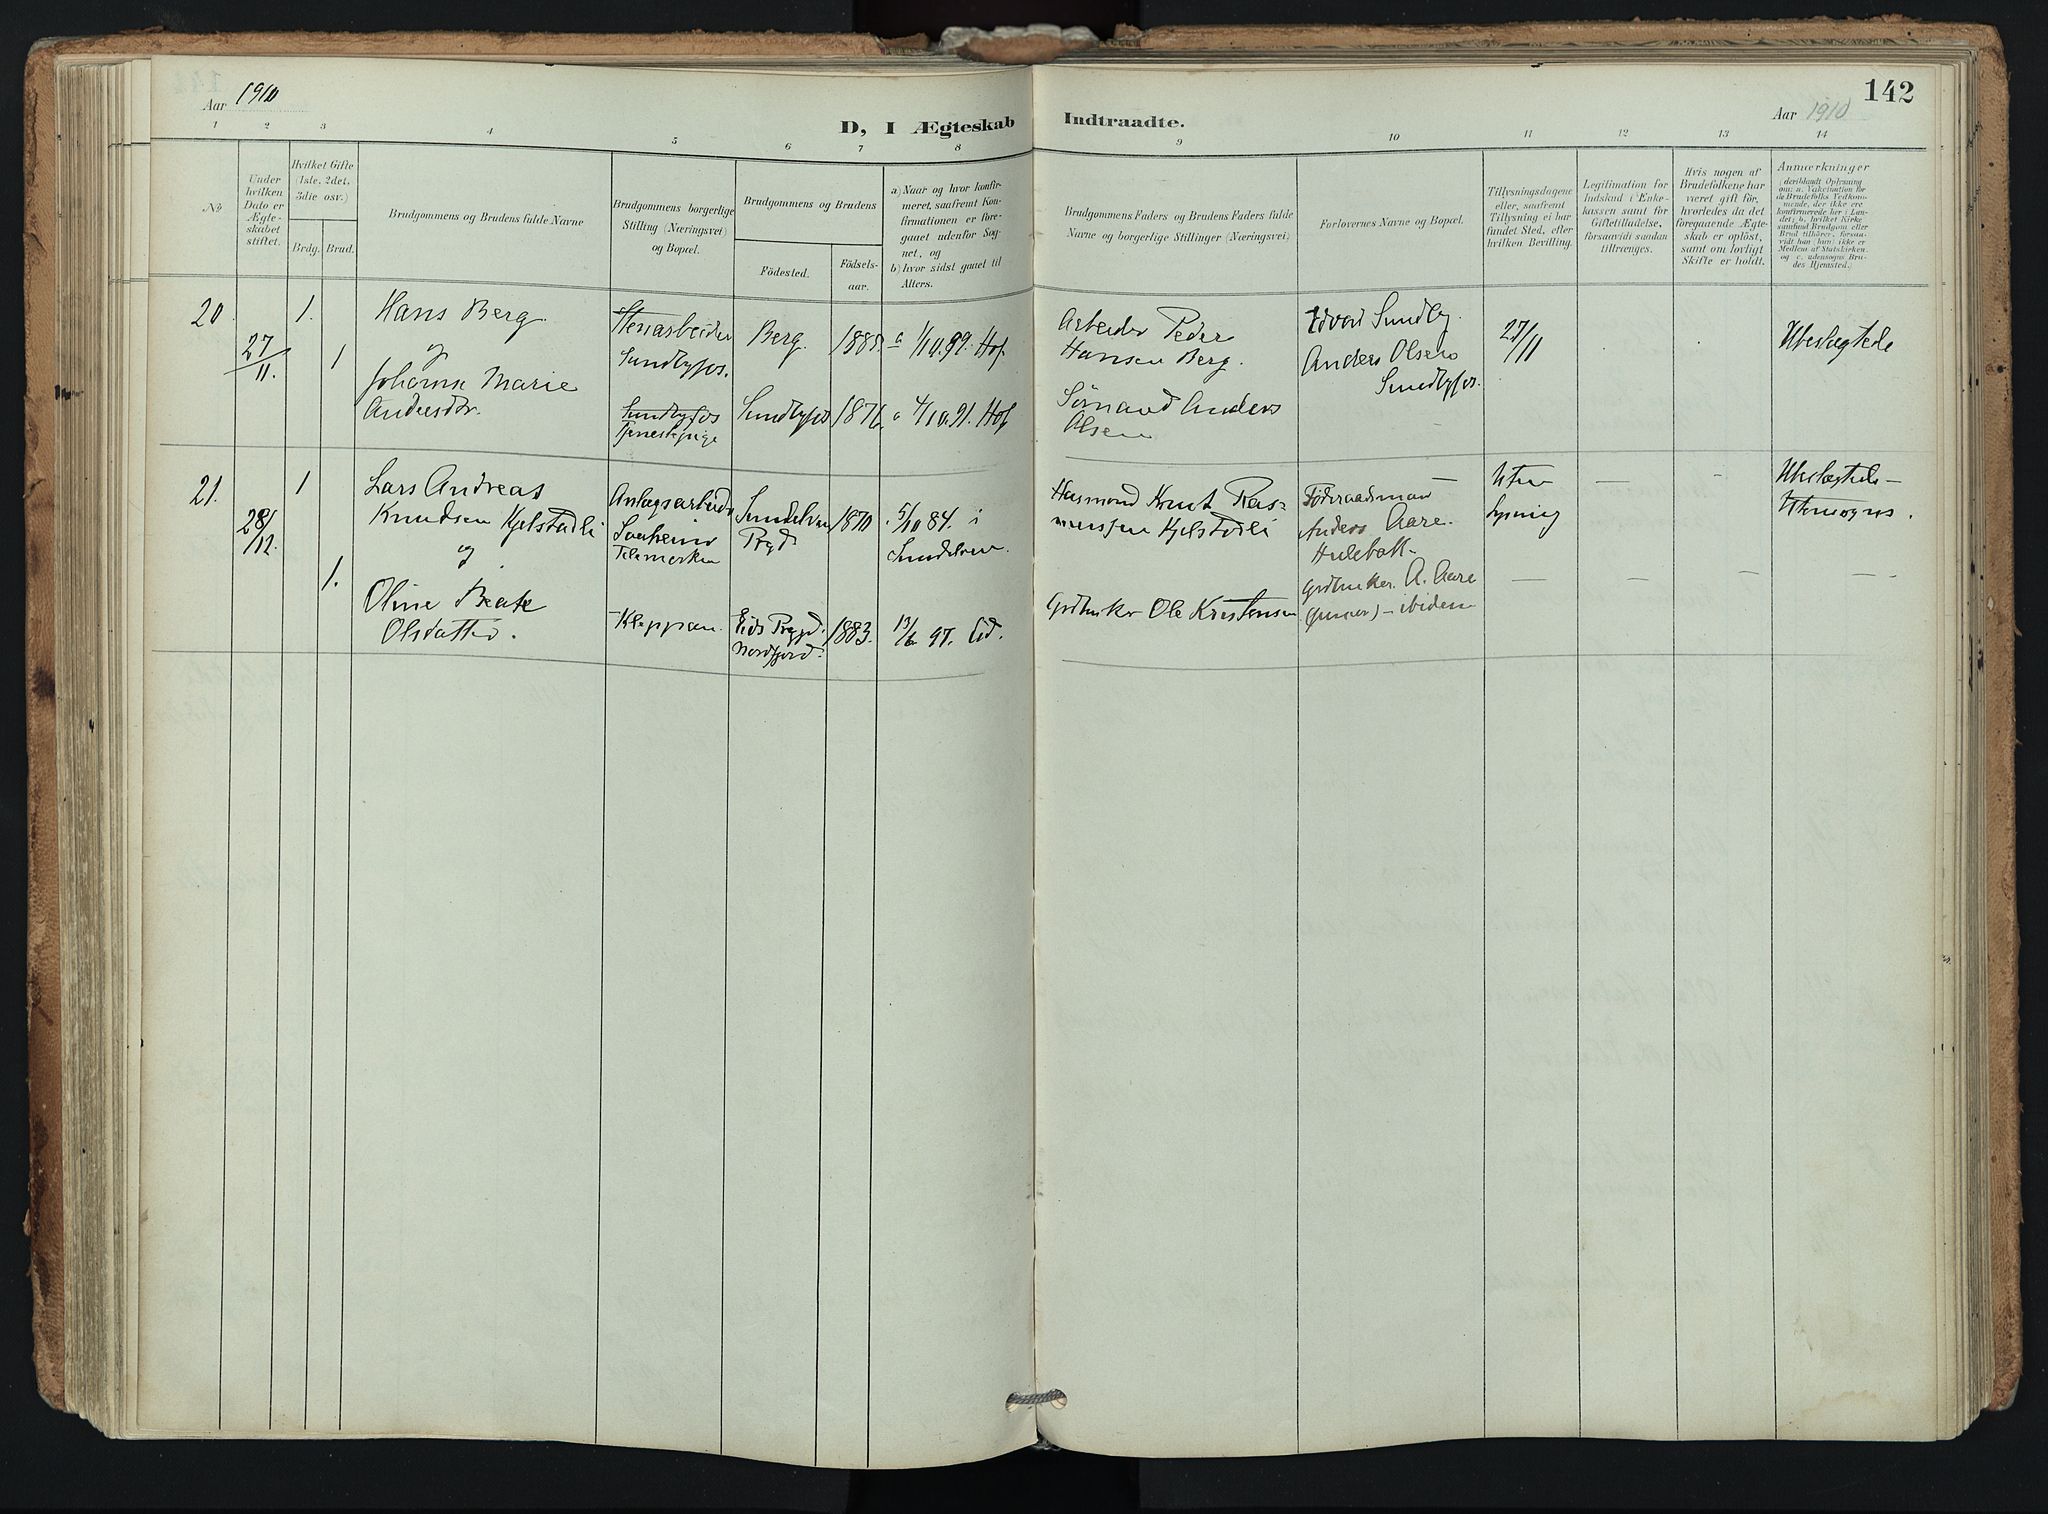 142
Aar 1910
D, I Ægteskab Indtraadte.
Aar 1910
1 2 3 4 5 6 7 8 9 10 11 12 13 14
No
Under hvilken Dato er Ægteskabet stiftet.
Hvilket Gifte (1ste, 2det, 3die osv.)
Brdg. Brud.
Brudgommens og Brudens fulde Navne
Brudgommens borgerlige Stilling (Næringsvei) og Bopæl.
Brudgommens og Brudens
Födested.
Födselsaar.
a) Naar og hvor konfirmeret, saafremt Konfirmationen er foregaaet udenfor Sognet, og
b) hvor sidst gaaet til Alters.
Brudgommens Faders og Brudens Faders fulde Navne og borgerlige Stillinger (Næringsvei)
Forlovernes Navne og Bopæl.
Tillysningsdagene eller, saafremt Tillysning ei har fundet Sted, efter hvilken Bevilling.
Legitimation for Indskud i Enkekassen samt for Giftetilladelse, forsaavidt saadan tiltrænges.
Hvis nogen af Brudefolkene har været gift för, hvorledes da det foregaaende Ægteskab er oplöst, samt om lovligt Skifte er holdt.
Anmærkninger
(deriblandt Oplysning om: a. Vakcination for de Brudefolks Vedkommende, der ikke ere konfirmerede her i Landet; b. hvilket Kirkesamfund Brudgom eller Brud tilhörer, forsaavidt han (hun) ikke er Medlem af Statskirken og c. udensogns Brudes Hjemsted.)
20.
27/11.
1.
1
Hans Berg
og
Johanna Marie
Andersdtr.
Stenarbeider
Sundbyfos.
Sundbyfos
Tjenestepige
Berg.
Sundbyfos
1885.
1876.
a 1/10.99. Hof.
a 4/10.91. Hof
Arbeider Peder
Hansen Berg.
Anders
Olsen
Edvard Sundby.
Anders Olsen
Sundbyfos.
27/11
Ubeslægtede
21.
28/12.
1
1.
Lars Andreas
Knudsen Kjelstadli
og
Oline Beate
Olsdatter.
Anlægsarbeider
Saaheim
Telemarken
Kleppan.
Sundelven
Prgd
Eids Prgjd.
Nordfjord.
1870
1883.
5/10 84. i
Sundelven.
13/6 97. Eid.
Husmand Knut Rasmussen Kjelstadli
Grdbruker Ole Kristensen
Föderaadsmand
Anders Aare.
Hulebak.
Grdbruker. A. Aare
(junior) - ibidem
Uten
Lysning
Ubeslægtede
Utensogns.